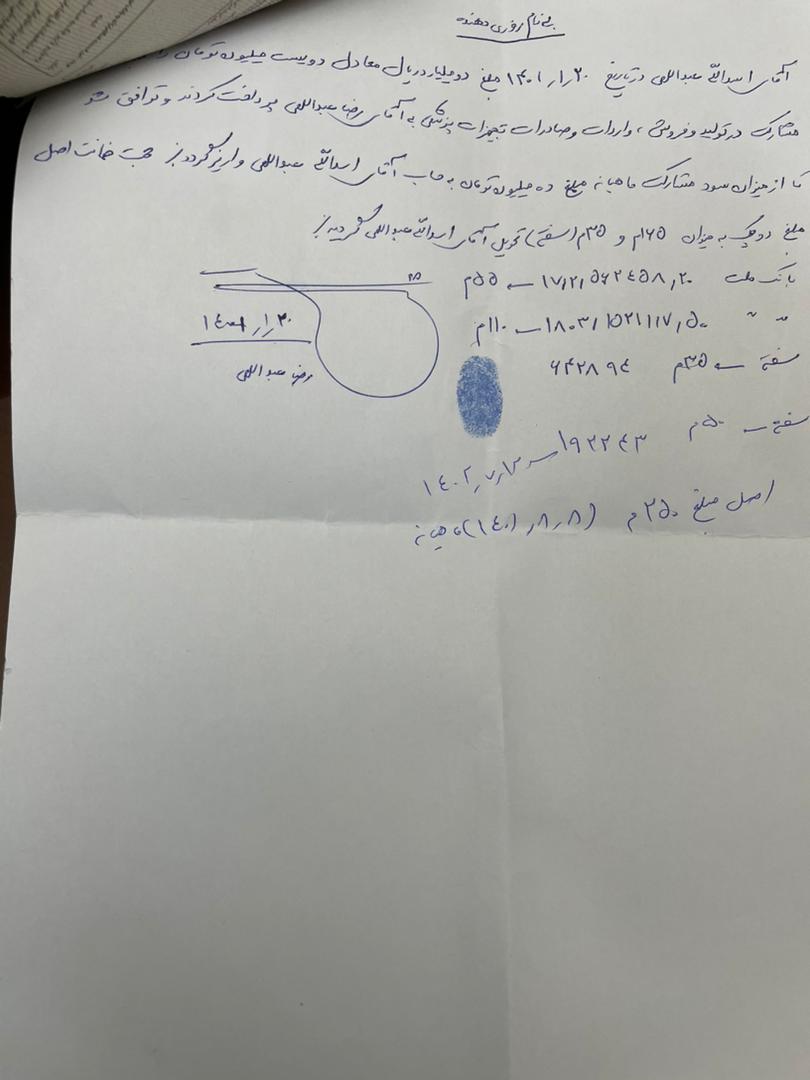 بنام روزی دهنده
آقای اسدالله عبداللهی در تاریخ ۱۴۰۱٫۱٫۲۰ مبلغ دو میلیارد ریال معادل دویست میلیون تومان
مشارکت در تولید و فروش، واردات و صادرات تجهیزات پزشکی به آقای رضا عبداللهی پرداخت کردند و توافق شد
تا از میزان سود مشارکت ماهیانه مبلغ ده میلیون تومان به حساب آقای اسدالله عبداللهی واریز گردد. جهت ضمانت اصل
مبلغ دو چک به میزان ۱۶۵م و ۳۵م (سفته) تحویل آقای اسدالله عبداللهی گردید.
بانک ملت ۱۷٫۲٫۵۶۲۴۵۸٫۲۰ ــ ۵۵م
" " ۱۸۰۳٫۱۵۲۱۱۱۷٫۵۰ ــ ۱۱۰م
سفته ــ ۳۵م ۶۴۲۸۹۴
۱۴۰۱٫۱٫۲۰
رضا عبداللهی
سفته ــ ۵۰م ۱۹۲۲۴۳ ــ ۱۴۰۲٫۷٫۳
اصل مبلغ ۲۵۰م (۱۴۰۱٫۸٫۸) ماهیانه